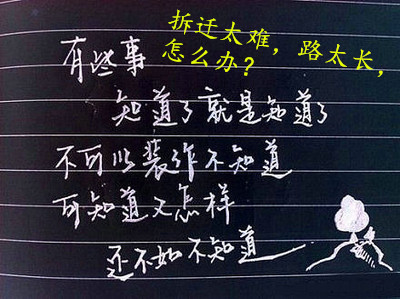 拆迁太难，路太长，
怎么办？
有些事
知道了就是知道了
不可以装作不知道
可知道又怎样
还不如不知道